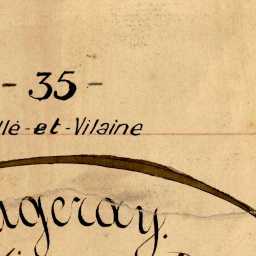 - 35 -
llé-et-Vilaine
ugeray.